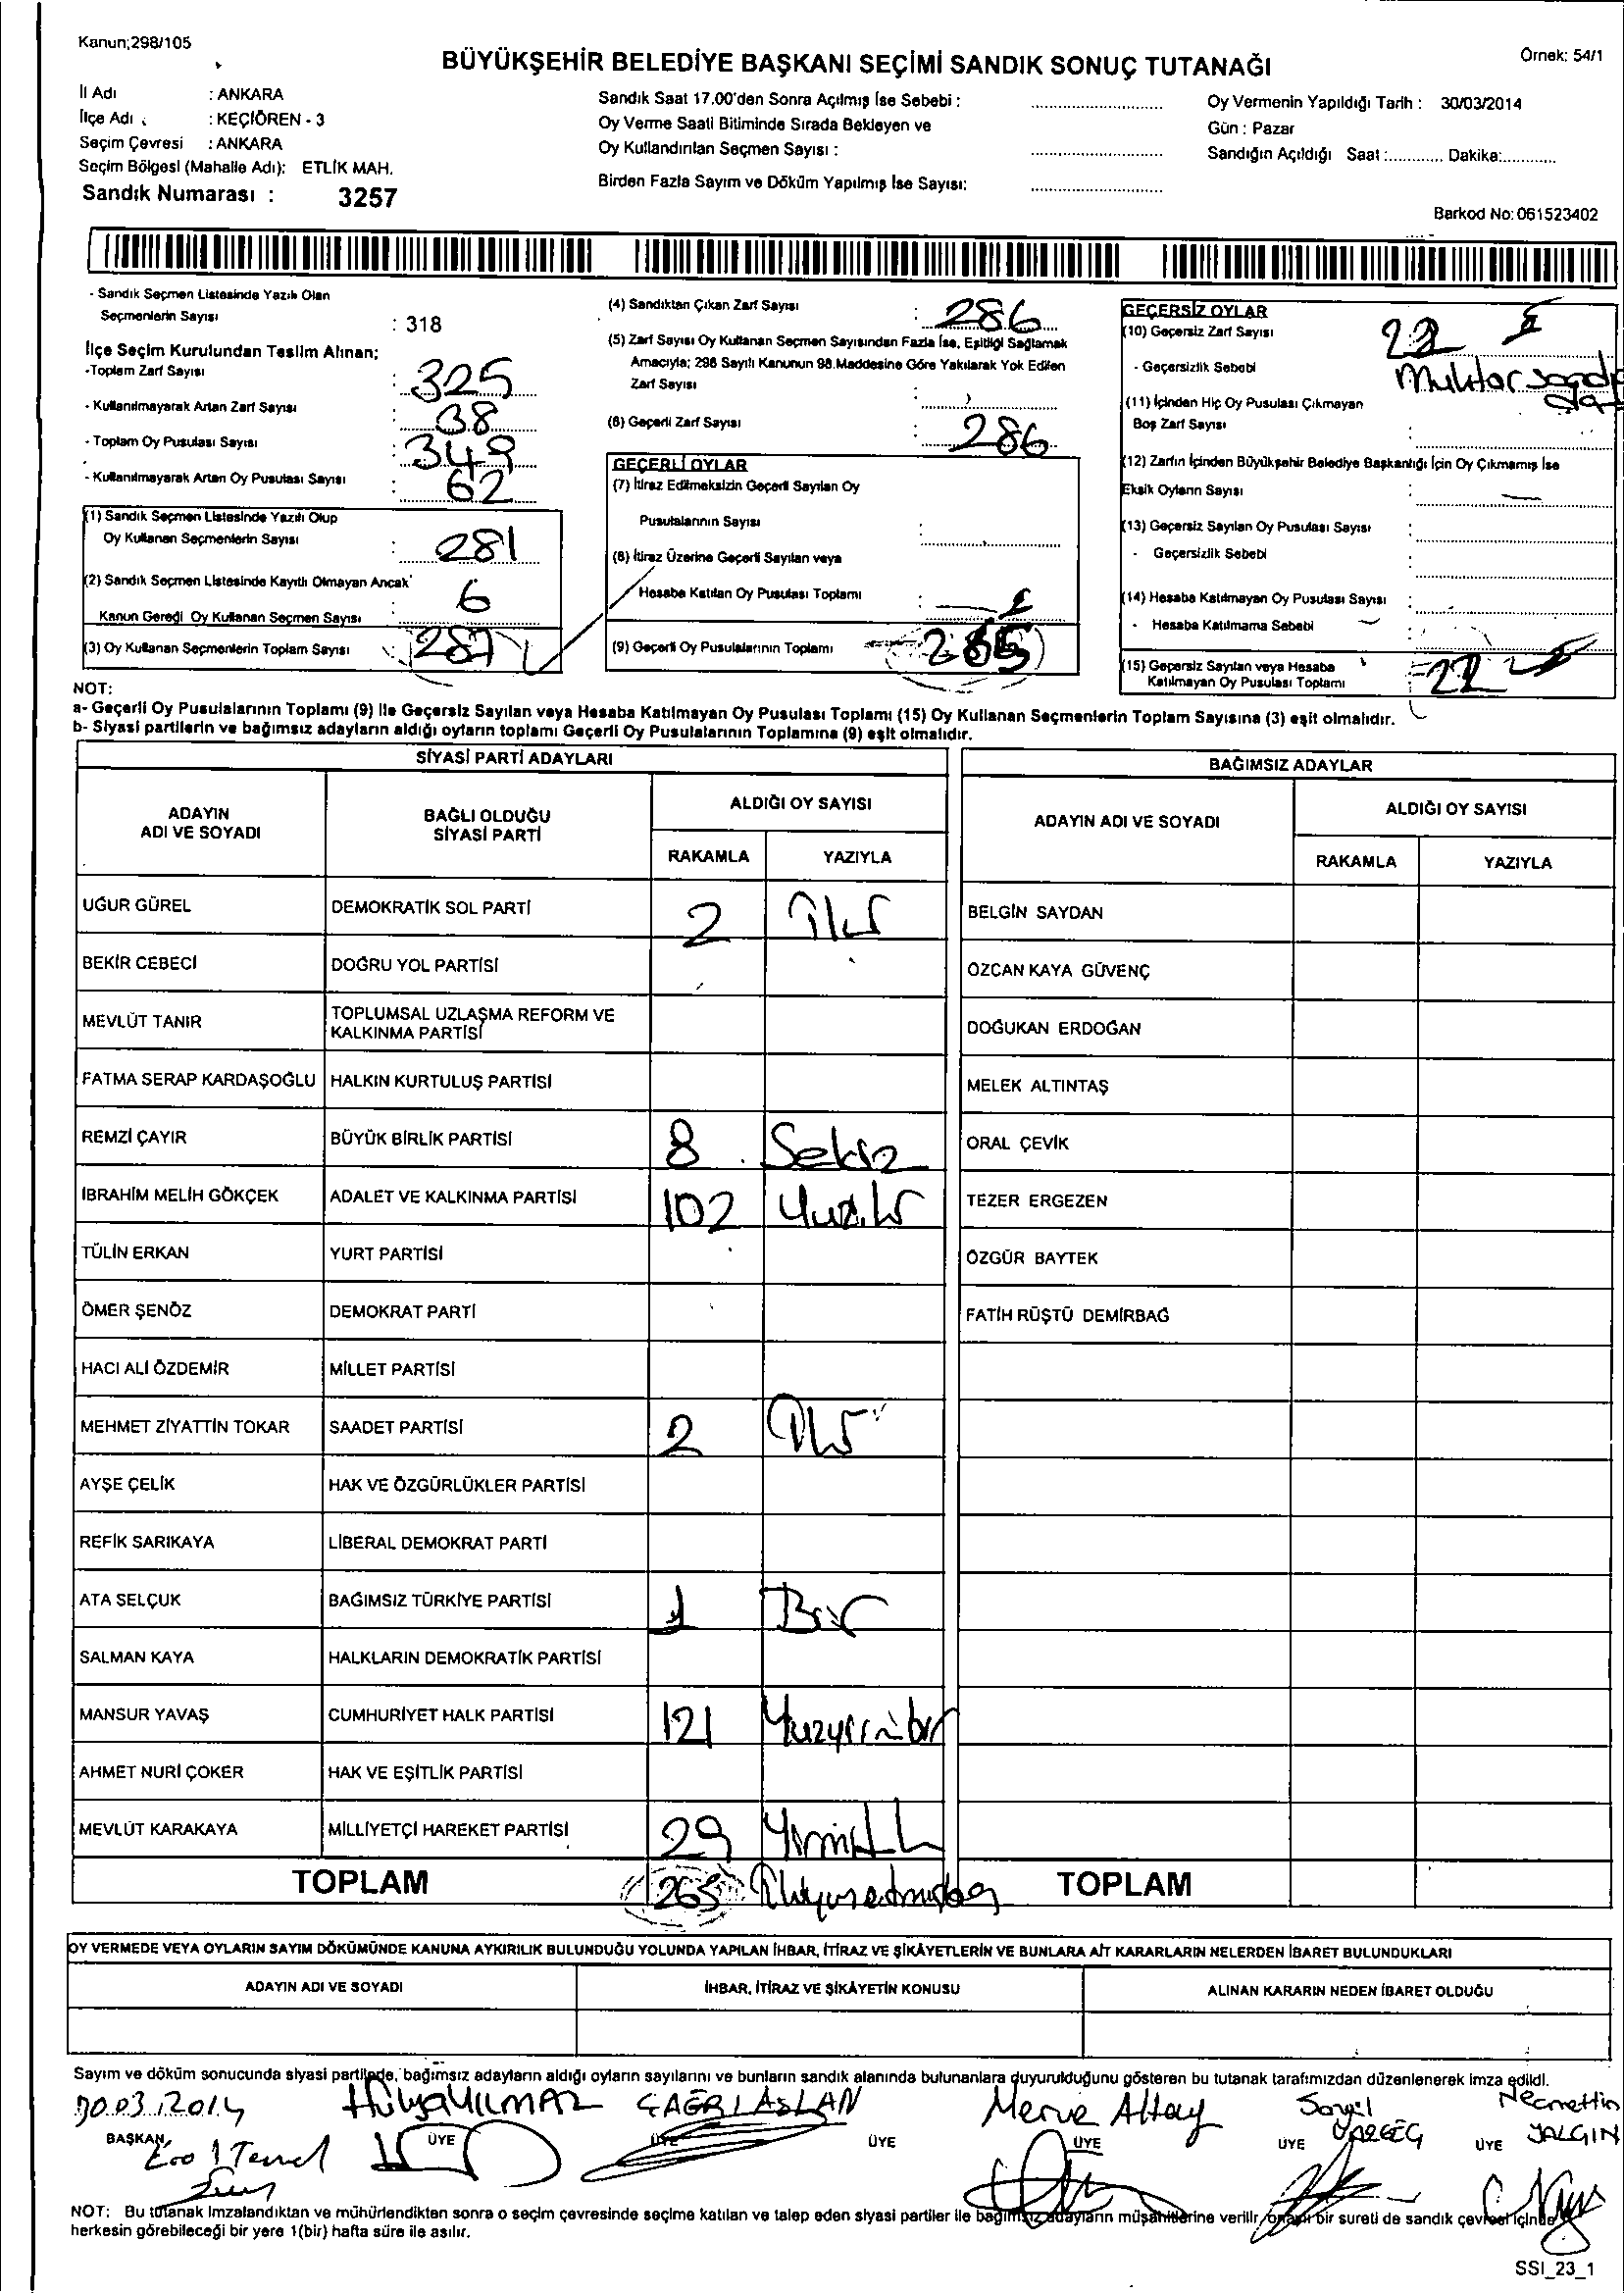 Kanun;298/105
BÜYÜKŞEHİR BELEDİYE BAŞKANI SEÇİMİ SANDIK SONUÇ TUTANAĞI
Örnek: 54/1
İl Adı : ANKARA
İlçe Adı : KEÇİÖREN - 3
Seçim Çevresi : ANKARA
Seçim Bölgesi (Mahalle Adı): ETLİK MAH.
Sandık Numarası : 3257
Sandık Saat 17.00'den Sonra Açılmış İse Sebebi :
Oy Verme Saati Bitiminde Sırada Bekleyen ve
Oy Kullandırılan Seçmen Sayısı :
Birden Fazla Sayım ve Döküm Yapılmış İse Sayısı:
Oy Vermenin Yapıldığı Tarih : 30/03/2014
Gün : Pazar
Sandığın Açıldığı Saat :............ Dakika:............
Barkod No: 061523402
- Sandık Seçmen Listesinde Yazılı Olan
Seçmenlerin Sayısı : 318
İlçe Seçim Kurulundan Teslim Alınan;
-Toplam Zarf Sayısı : 325
- Kullanılmayarak Artan Zarf Sayısı : 38
- Toplam Oy Pusulası Sayısı : 349
- Kullanılmayarak Artan Oy Pusulası Sayısı : 62
(1) Sandık Seçmen Listesinde Yazılı Olup
Oy Kullanan Seçmenlerin Sayısı : 281
(2) Sandık Seçmen Listesinde Kayıtlı Olmayan Ancak
Kanun Gereği Oy Kullanan Seçmen Sayısı : 6
(3) Oy Kullanan Seçmenlerin Toplam Sayısı : 287
(4) Sandıktan Çıkan Zarf Sayısı : 286
(5) Zarf Sayısı Oy Kullanan Seçmen Sayısından Fazla İse, Eşitliği Sağlamak
Amacıyla; 298 Sayılı Kanunun 98.Maddesine Göre Yakılarak Yok Edilen
Zarf Sayısı :
(6) Geçerli Zarf Sayısı : 286
GEÇERLİ OYLAR
(7) İtiraz Edilmeksizin Geçerli Sayılan Oy
Pusulalarının Sayısı :
(8) İtiraz Üzerine Geçerli Sayılan veya
Hesaba Katılan Oy Pusulası Toplamı :
(9) Geçerli Oy Pusulalarının Toplamı : 265
GEÇERSİZ OYLAR
(10) Geçersiz Zarf Sayısı 22
- Geçersizlik Sebebi
(11) İçinden Hiç Oy Pusulası Çıkmayan
Boş Zarf Sayısı :
(12) Zarfın İçinden Büyükşehir Belediye Başkanlığı İçin Oy Çıkmamış İse
Eksik Oyların Sayısı : —
(13) Geçersiz Sayılan Oy Pusulası Sayısı :
- Geçersizlik Sebebi
(14) Hesaba Katılmayan Oy Pusulası Sayısı :
- Hesaba Katılmama Sebebi
(15) Geçersiz Sayılan veya Hesaba
Katılmayan Oy Pusulası Toplamı 22
NOT:
a- Geçerli Oy Pusulalarının Toplamı (9) ile Geçersiz Sayılan veya Hesaba Katılmayan Oy Pusulası Toplamı (15) Oy Kullanan Seçmenlerin Toplam Sayısına (3) eşit olmalıdır.
b- Siyasi partilerin ve bağımsız adayların aldığı oyların toplamı Geçerli Oy Pusulalarının Toplamına (9) eşit olmalıdır.
SİYASİ PARTİ ADAYLARI
ADAYIN
ADI VE SOYADI
BAĞLI OLDUĞU
SİYASİ PARTİ
ALDIĞI OY SAYISI
RAKAMLA YAZIYLA
UĞUR GÜREL DEMOKRATİK SOL PARTİ 2 İki
BEKİR CEBECİ DOĞRU YOL PARTİSİ
MEVLÜT TANIR TOPLUMSAL UZLAŞMA REFORM VE
KALKINMA PARTİSİ
FATMA SERAP KARDAŞOĞLU HALKIN KURTULUŞ PARTİSİ
REMZİ ÇAYIR BÜYÜK BİRLİK PARTİSİ 8 Sekiz
İBRAHİM MELİH GÖKÇEK ADALET VE KALKINMA PARTİSİ 102 Yüziki
TÜLİN ERKAN YURT PARTİSİ
ÖMER ŞENÖZ DEMOKRAT PARTİ
HACI ALİ ÖZDEMİR MİLLET PARTİSİ
MEHMET ZİYATTİN TOKAR SAADET PARTİSİ 2 İki
AYŞE ÇELİK HAK VE ÖZGÜRLÜKLER PARTİSİ
REFİK SARIKAYA LİBERAL DEMOKRAT PARTİ
ATA SELÇUK BAĞIMSIZ TÜRKİYE PARTİSİ 1 Bir
SALMAN KAYA HALKLARIN DEMOKRATİK PARTİSİ
MANSUR YAVAŞ CUMHURİYET HALK PARTİSİ 121 Yüzyirmibir
AHMET NURİ ÇOKER HAK VE EŞİTLİK PARTİSİ
MEVLÜT KARAKAYA MİLLİYETÇİ HAREKET PARTİSİ 29
TOPLAM 265 İkiyüzaltmışbeş
BAĞIMSIZ ADAYLAR
ADAYIN ADI VE SOYADI
ALDIĞI OY SAYISI
RAKAMLA YAZIYLA
BELGİN SAYDAN
ÖZCAN KAYA GÜVENÇ
DOĞUKAN ERDOĞAN
MELEK ALTINTAŞ
ORAL ÇEVİK
TEZER ERGEZEN
ÖZGÜR BAYTEK
FATİH RÜŞTÜ DEMİRBAĞ
TOPLAM
OY VERMEDE VEYA OYLARIN SAYIM DÖKÜMÜNDE KANUNA AYKIRILIK BULUNDUĞU YOLUNDA YAPILAN İHBAR, İTİRAZ VE ŞİKÂYETLERİN VE BUNLARA AİT KARARLARIN NELERDEN İBARET BULUNDUKLARI
ADAYIN ADI VE SOYADI İHBAR, İTİRAZ VE ŞİKÂYETİN KONUSU ALINAN KARARIN NEDEN İBARET OLDUĞU
Sayım ve döküm sonucunda siyasi partilerde, bağımsız adayların aldığı oyların sayılarını ve bunların sandık alanında bulunanlara duyurulduğunu gösteren bu tutanak tarafımızdan düzenlenerek imza edildi.
30.03.2014 Hülya YILMAZ ÇAĞRI ASLAN Merve Altay Necmettin
BAŞKAN ÜYE ÜYE ÜYE ÜYE ÜYE ÜYE YALGIN
Erol Temel
NOT: Bu tutanak imzalandıktan ve mühürlendikten sonra o seçim çevresinde seçime katılan ve talep eden siyasi partiler ile bağımsız adayların müşahitlerine verilir, onaylı bir sureti de sandık çevresi içinde
herkesin görebileceği bir yere 1(bir) hafta süre ile asılır.
SSI_23_1